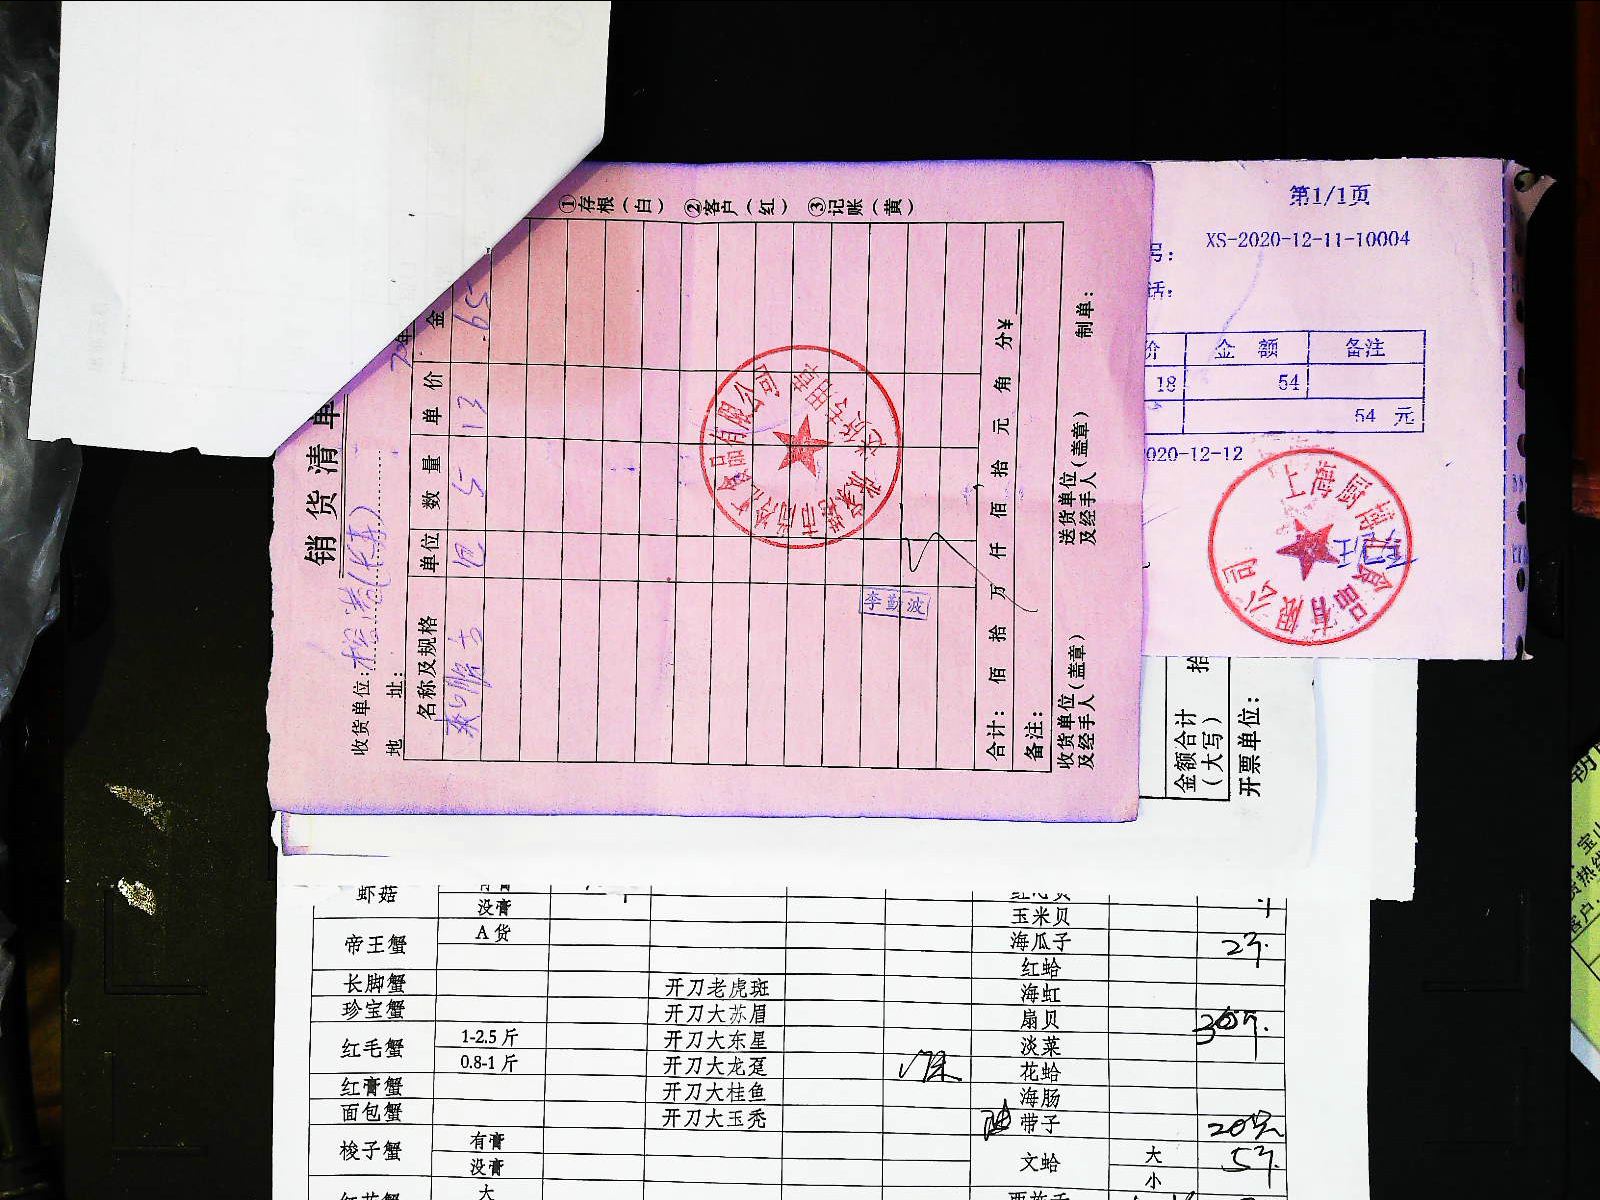 ①存根（白） ②客户（红） ③记账（黄）
销货清单
收货单位:
地 址:
名称及规格 单位 数量 单价 金
5 13 65
合计: 佰 拾 万 仟 佰 拾 元 角 分¥
备注:
收货单位 送货单位
及经手人(盖章) 及经手人(盖章) 制单:
李勤波
食品有限公司
送货专用章
第1/1页
号: XS-2020-12-11-10004
话:
价 金 额 备注
18 54
54 元
020-12-12
上海厨
食品有限公司
金额合计 拾
(大写)
开票单位:
虾菇
没膏
玉米贝
帝王蟹 A 货 海瓜子 2斤.
红蛤
长脚蟹 开刀老虎斑 海虹
珍宝蟹 开刀大苏眉 扇贝
红毛蟹 1-2.5 斤 开刀大东星 淡菜
0.8-1 斤 开刀大龙趸 花蛤
红膏蟹 开刀大桂鱼 海肠
面包蟹 开刀大玉秃 带子
梭子蟹 有膏 文蛤 大 5斤.
没膏 小
大
宝山
热线
客户